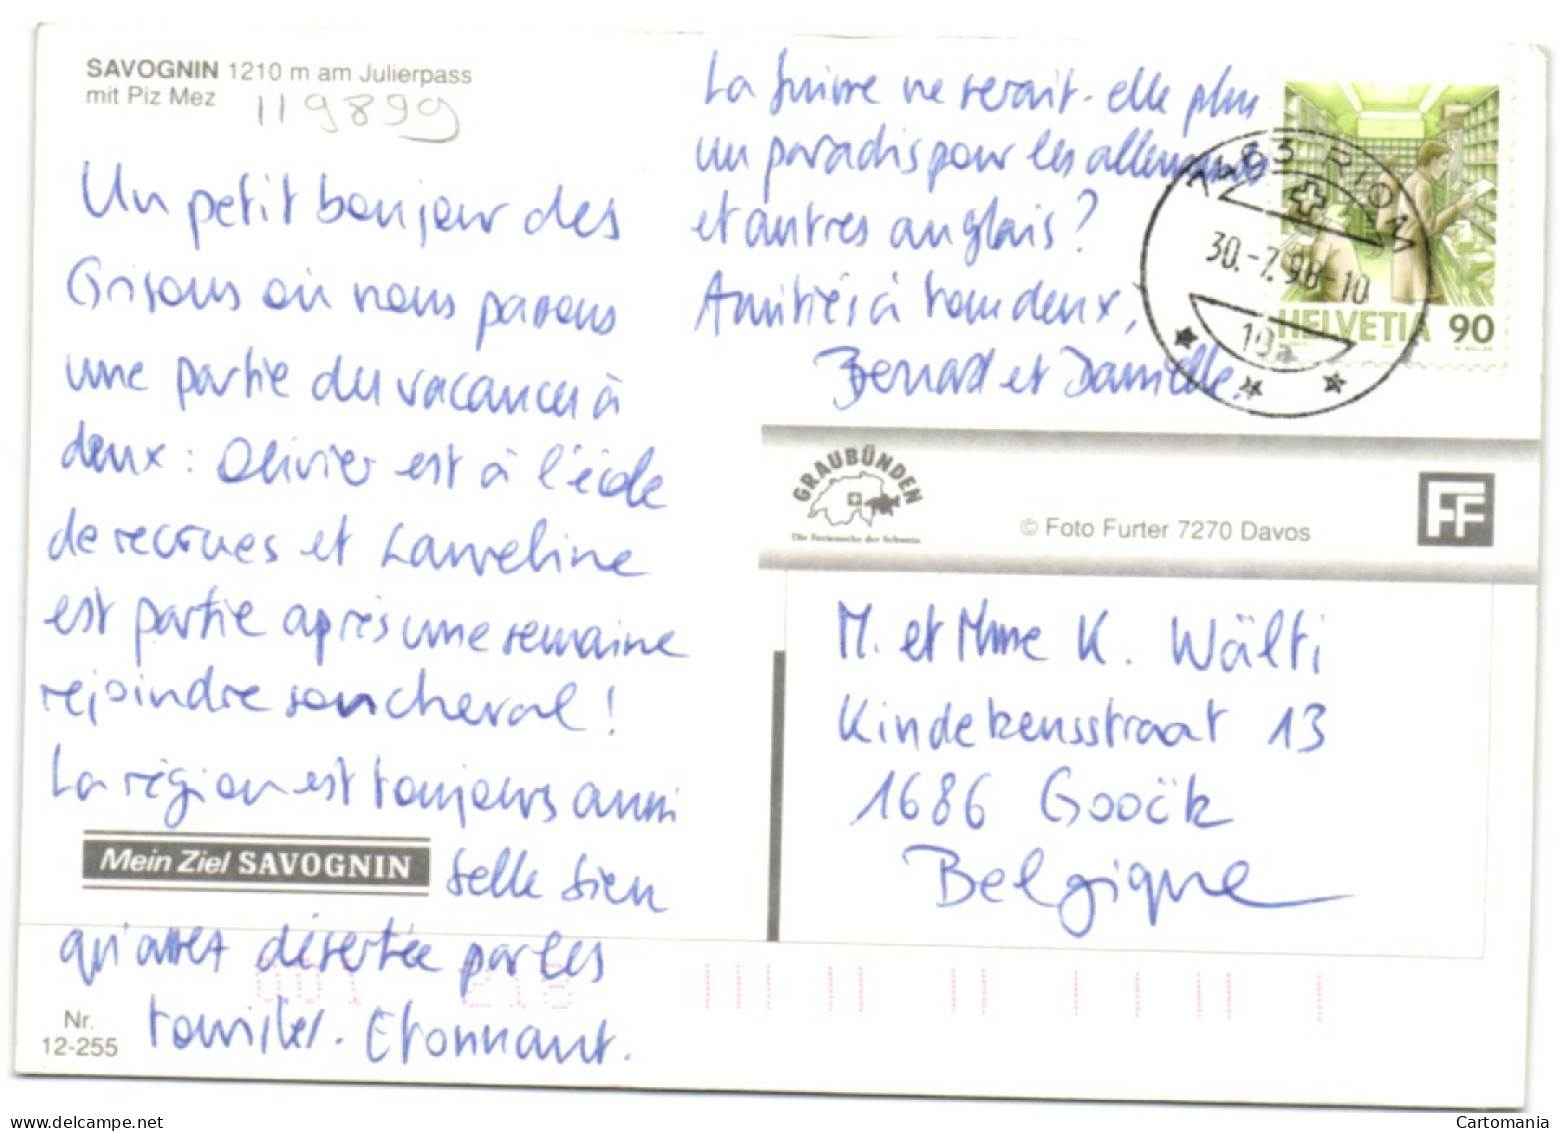 SAVOGNIN 1210 m am Julierpass
mit Piz Mez
119899
Un petit bonjour des
Grisons où nous passons
une partie des vacances à
deux : Olivier est à l'école
de recrues et Laureline
est partie après une semaine
rejoindre son cheval !
La région est toujours aussi
Mein Ziel SAVOGNIN
belle bien
qu'assez désertée par les
touristes. Etonnant.
Nr.
12-255
La Suisse ne serait-elle plus
un paradis pour les allemands
et autres anglais ?
Amitiés à tous deux,
Bernard et Danielle.
7463 RIOM
30.-7.98-10
10a
HELVETIA 90
GRAUBÜNDEN
Die Ferienecke der Schweiz.
© Foto Furter 7270 Davos
FF
M. et Mme K. Wälti
Kindekensstraat 13
1686 Gooïk
Belgique
001 218
delcampe.net
Cartomania